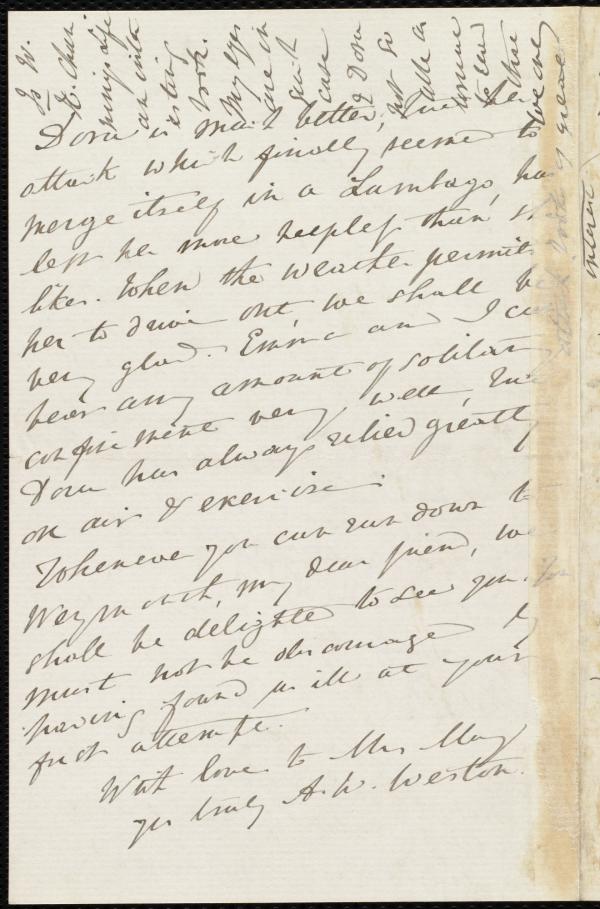 Dora is much better, but her
attack which finally seemed to
merge itself in a Lumbago, has
left her more sleepless than she
likes. When the weather permits
her to drive out, we shall be
very glad. Emma and I can
bear any amount of solitary
confinement very well, but
Dora has always relied greatly
on air & exercise.
Whenever you can run down to
Weymouth, my dear friend, we
shall be delighted to see you. You
must not be discouraged by
having found us ill at your
first attempt.
With love to Mrs May
yrs truly A. W. Weston.
Is W.
E. Chan
nings Life
an inte
resting
book.
My eyes
are in
case
& Dora
not so
able as
usual
to
interest.